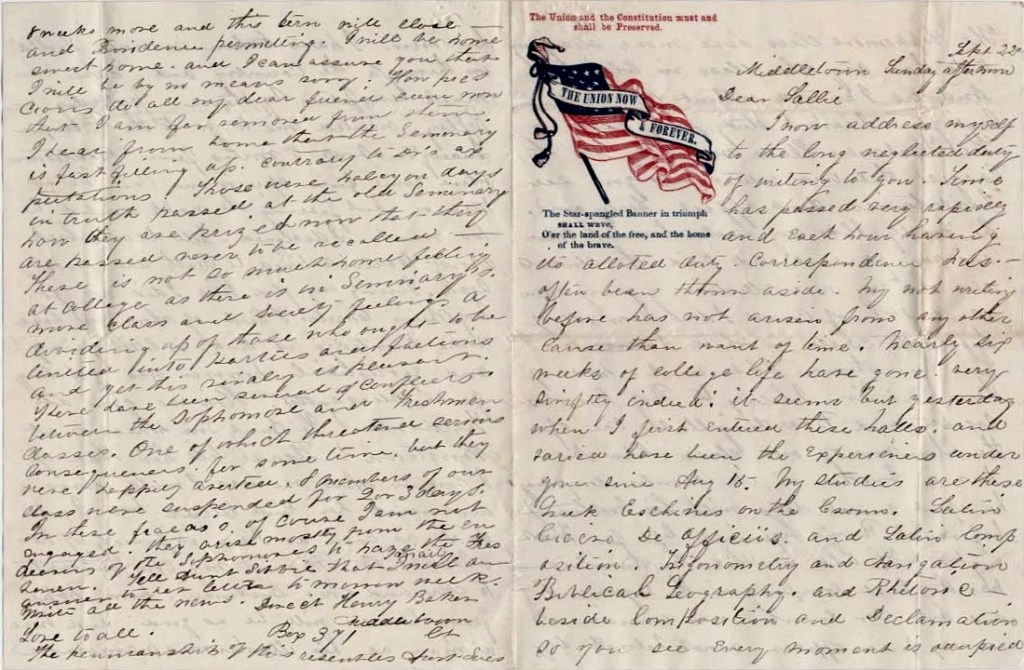 The Union and the Constitution must and
shall be Preserved.
THE UNION NOW
& FOREVER.
The Star-spangled Banner in triumph
SHALL wave,
O'er the land of the free, and the home
of the brave.
Sept 22nd
Middletown Sunday afternoon
Dear Sallie
I now address myself
to the long neglected duty
of writing to you. Time
has passed very rapidly
and each hour having
its alloted duty. Correspondence has
often been thrown aside. My not writing
before has not arisen from any other
cause than want of time. Nearly six
weeks of college life have gone very
swiftly indeed; it seems but yesterday
when I first entered these halls. and
varied have been the experiences under
gone since Aug 15. My studies are these
Greek Eschines on the Crown. Latin
Cicero De Officiis. and Latin Comp
osition. Trigonometry and Navigation
Biblical Geography. and Rhetoric
beside Composition and Declamation
so you see every moment is occupied
8 weeks more and this term will close
and Providence permitting. I will be home
sweet home. and I can assure you that
I will be by no means sorry. How pres
cious do all my dear friends seem now
that I am far removed from them.
I hear from home that the Seminary
is fast filling up. contrary to Drs ex
pectations. Those were halcyon days
in truth passed at the old Seminary
how they are prized now that they
are passed never to be recalled
There is not so much home feeling
at College as there is in Seminary's.
more class and society feelings a
dividing up of those who ought to be
united into parties and factions
and yet this rivalry is pleasant.
There have been several conflicts
between the Sophomore and Freshmen
classes. One of which threatened serious
consequences for some time. but they
were happily averted. 8 members of our
class were suspended for 2 or 3 days.
In these fracas's, of course I am not
engaged. they arise mostly from the en
deavors of the Sophomores to haze the Fres
Tell Aunt Libbie that I will an
answer to her letter to morrow week.
Write all the news. Direct Henry Baker
Middletown
Love to all. Box 371 Ct
The penmanship of this resembles